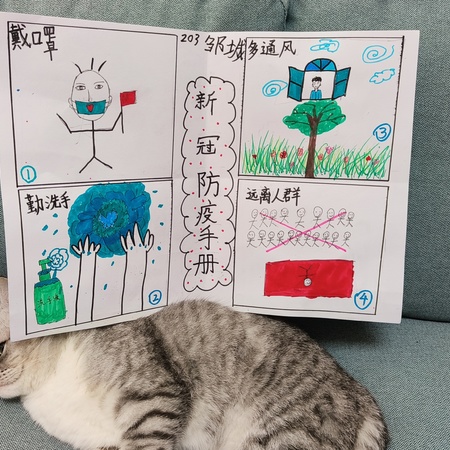 戴口罩
①
203 邹城
多通风
③
新冠防疫手册
勤洗手
②
远离人群
④